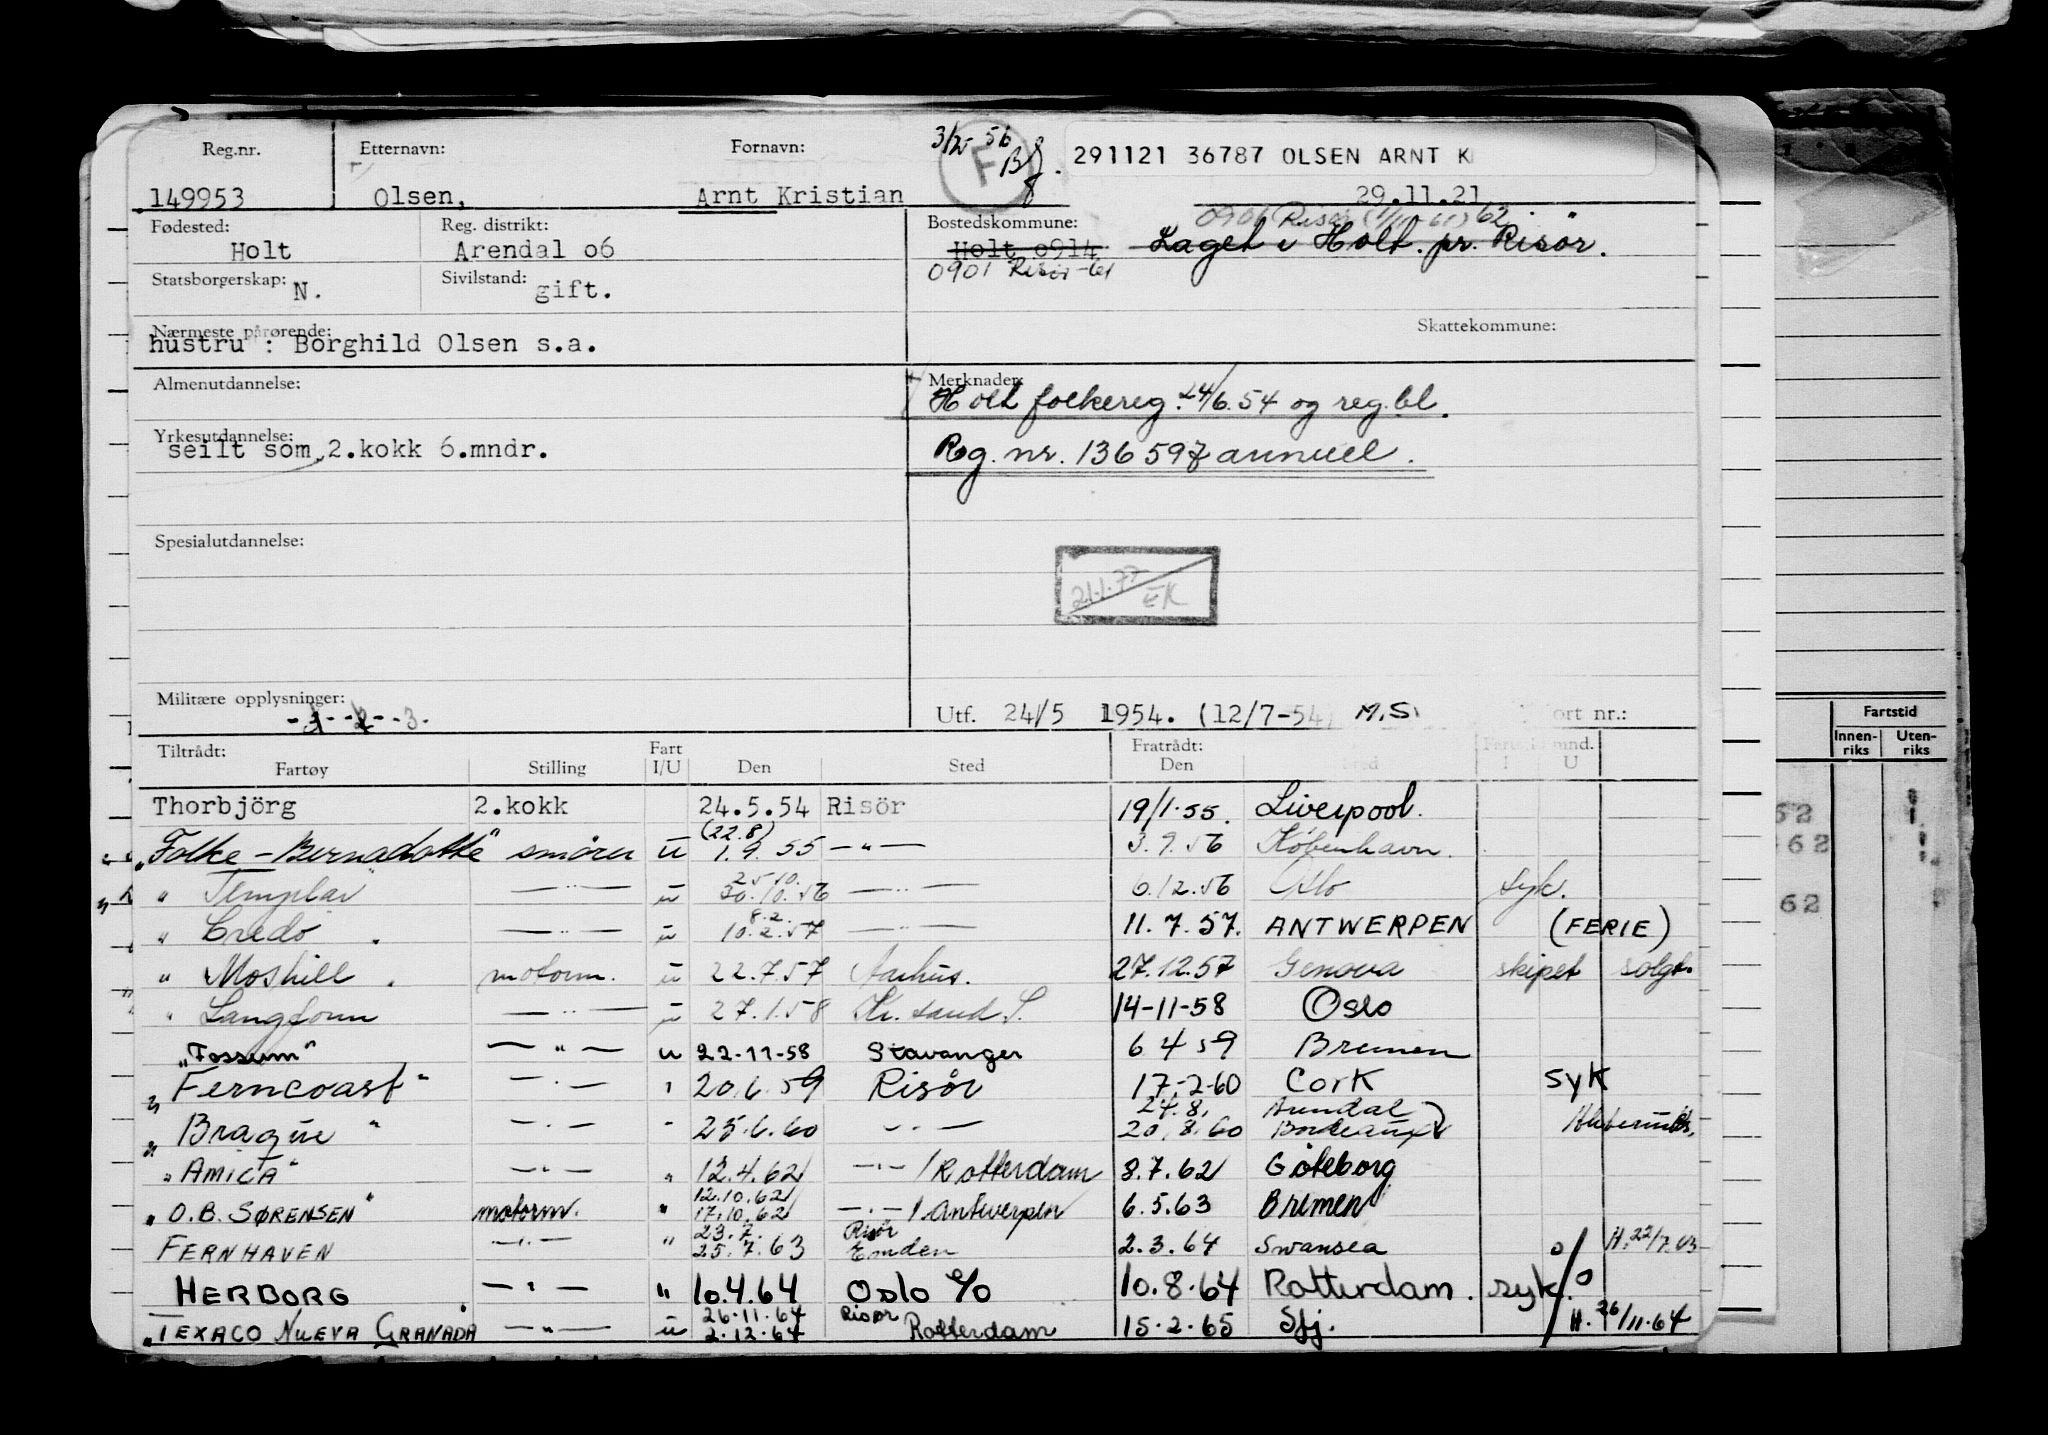 3/12 56
F
291121 36787 OLSEN ARNT K
Reg.nr. Etternavn: Fornavn:
149953 Olsen, Arnt Kristian 29.11.21
Fødested: Reg. distrikt: Bostedskommune: 0906 Risør (1/1 61) 62
Holt Arendal 06 Holt 0914 Laget i Holt. pr. Risör.
Statsborgerskap: N. Sivilstand: gift. 0901 Risør -61
Nærmeste pårørende: Skattekommune:
hustru : Borghild Olsen s.a.
Almenutdannelse: Merknader:
Holt folkereg. 24/6.54 og reg.bl.
Yrkesutdannelse:
seilt som 2.kokk 6.mndr. Reg. nr. 136597 annuel.
Spesialutdannelse:
21.1.77 EK
Militære opplysninger:
-1--2--3-
Utf. 24/5 1954. (12/7-54) M.S. ort nr.:
Tiltrådt: Fart Fratrådt: mnd.
Fartøy Stilling I/U Den Sted Den Sted I U
Fartstid
Innen-riks Uten-riks
Thorbjörg 2.kokk 24.5.54 Risör 19/1.55. Liverpool.
(22.8)
"Folke-Bernadotte" smører u 1.9.55 -"- 3.9.56 København.
25.10.
" Templar" -"- u 30.10.56 -"- 6.12.56 Oslo syk.
8.2.
" Credo . -"- u 10.2.57 -"- 11.7.57. ANTWERPEN (FERIE)
" Moshill . motorm. u 22.7.57 Aarhus. 27.12.57 Genova skipet solgt.
" Langfonn -"- u 27.1.58 Kr. sand S. 14-11-58 Oslo
"Fossum" -"- u 22-11-58 Stavanger 6 4 59 Bremen
" Ferncoast" -"- " 20.6.59 Risör 17-2-60 Cork syk
24.8. Arendal
" Brague " -"- " 25.6.60 -"- 20.8.60 Bordeaux
" AMICA" -"- " 12.4.62 -"-/Rotterdam 8.7.62 Göteborg
12.10.62
" O.B. SØRENSEN" motorm. " 17.10.62 -"-/Antwerpen 6.5.63 Bremen
23.7. Risör
FERNHAVEN -"- " 25.7.63 Emden 2.3.64 Swansea o/ H.22/7.63
HERBORG -"- " 10.4.64 Oslo o/o 10.8.64 Rotterdam. syk. o
26.11.64 Risør
"TEXACO NUEVA GRANADA -"- u 2.12.64 Rotterdam 15.2.65 Sfj. H. 26/11.64
62
62
62